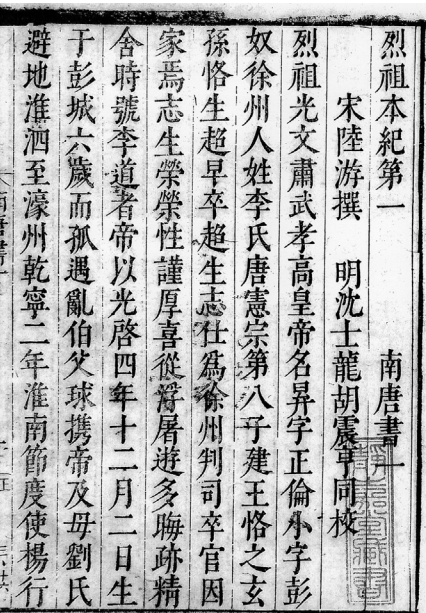 烈祖本紀第一　南唐書一
宋陸游撰　明沈士龍胡震亨同校
烈祖光文肅武孝高皇帝名昇字正倫小字彭
奴徐州人姓李氏唐憲宗第八子建王恪之玄
孫恪生超早卒超生志仕爲徐州判司卒官因
家焉志生榮榮性謹厚喜從浮屠遊多晦跡精
舍時號李道者帝以光啓四年十二月二日生
于彭城六歲而孤遇亂伯父球攜帝及母劉氏
避地淮泗至濠州乾寧二年淮南節度使楊行